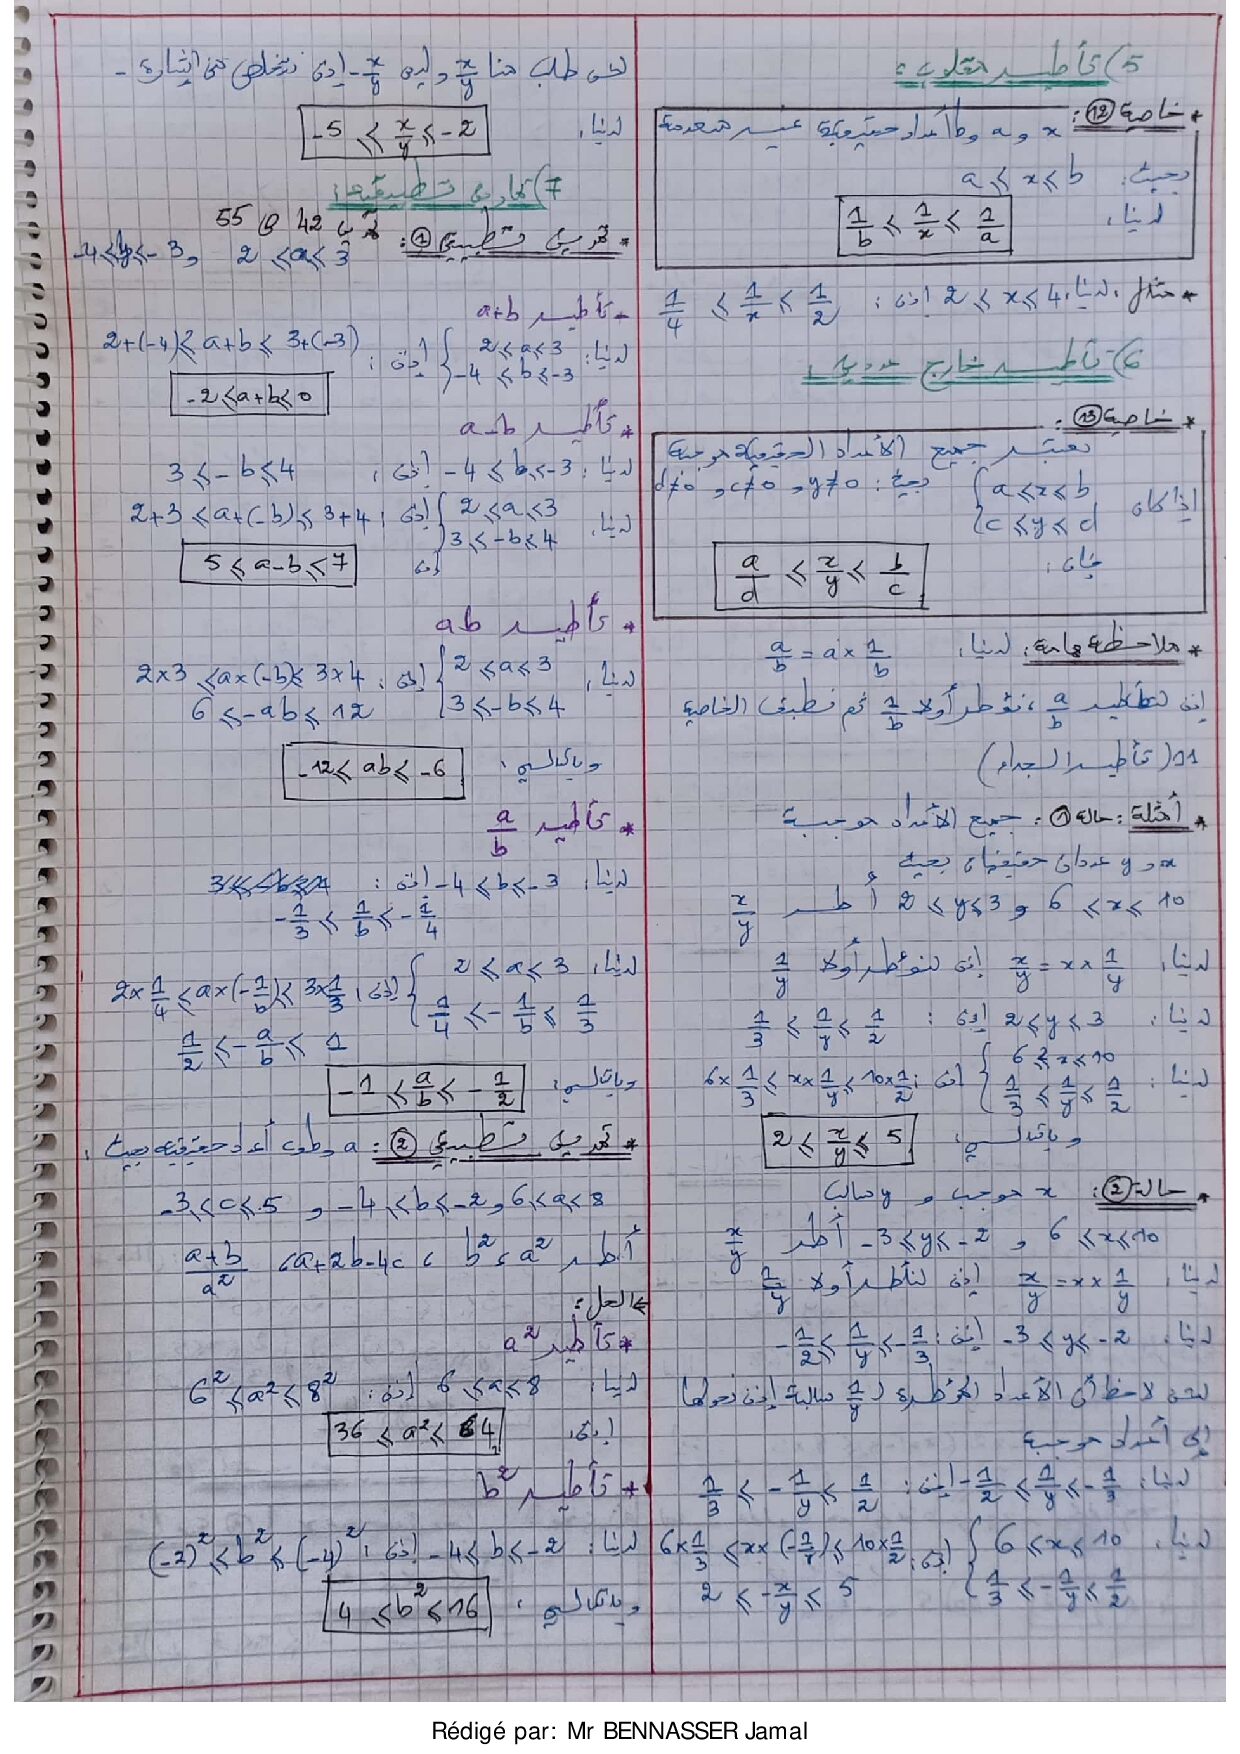 5) تأطير مقلوب:
* خاصية 12:
x و a و b أعداد حقيقية غير منعدمة
بحيث: a ⩽ x ⩽ b
لدينا: 1/b ⩽ 1/x ⩽ 1/a
* مثال: لدينا 2 ⩽ x ⩽ 4 إذن: 1/4 ⩽ 1/x ⩽ 1/2
6) تأطير خارج عددين:
* خاصية 13:
نعتبر جميع الأعداد الحقيقية موجبة
بحيث: y≠0 و c≠0 و d≠0
إذا كان { a ⩽ x ⩽ b
c ⩽ y ⩽ d
فإن: a/d ⩽ x/y ⩽ b/c
* ملاحظة هامة: لدينا a/b = a × 1/b
إذن لتأطير a/b، نؤطر أولا 1/b ثم نطبق الخاصية
11 (تأطير الجداء)
* أمثلة: حالة 1: جميع الأعداد موجبة
x و y عددان حقيقيان بحيث
6 ⩽ x ⩽ 10 و 2 ⩽ y ⩽ 3 أطر x/y
لدينا x/y = x × 1/y إذن لنؤطر أولا 1/y
لدينا: 2 ⩽ y ⩽ 3 إذن: 1/3 ⩽ 1/y ⩽ 1/2
لدينا: { 6 ⩽ x ⩽ 10
1/3 ⩽ 1/y ⩽ 1/2 إذن: 6×1/3 ⩽ x×1/y ⩽ 10×1/2
وبالتالي: 2 ⩽ x/y ⩽ 5
* حالة 2: x موجب و y سالب
6 ⩽ x ⩽ 10 و -3 ⩽ y ⩽ -2 أطر x/y
لدينا x/y = x × 1/y إذن لنأطر أولا 1/y
لدينا -3 ⩽ y ⩽ -2 إذن: -1/2 ⩽ 1/y ⩽ -1/3
نحن لاحظ أن الأعداد المؤطرة لـ 1/y سالبة إذن نحولها
إلى أعداد موجبة
لدينا: -1/2 ⩽ 1/y ⩽ -1/3 إذن: 1/3 ⩽ -1/y ⩽ 1/2
لدينا { 6 ⩽ x ⩽ 10
1/3 ⩽ -1/y ⩽ 1/2 إذن: 6×1/3 ⩽ x×(-1/y) ⩽ 10×1/2
2 ⩽ -x/y ⩽ 5
طلب منا x/y وليس -x/y إذن نتخلص من إشارة -
لدينا: -5 ⩽ x/y ⩽ -2
7) تمارين تطبيقية:
42 و 55
* تمرين تطبيقي 1: 2 ⩽ a ⩽ 3 و -4 ⩽ b ⩽ -3
* تأطير a+b
لدينا: { 2 ⩽ a ⩽ 3
-4 ⩽ b ⩽ -3 إذن: 2+(-4) ⩽ a+b ⩽ 3+(-3)
-2 ⩽ a+b ⩽ 0
* تأطير a-b
لدينا: -4 ⩽ b ⩽ -3 إذن: 3 ⩽ -b ⩽ 4
لدينا: { 2 ⩽ a ⩽ 3
3 ⩽ -b ⩽ 4 إذن: 2+3 ⩽ a+(-b) ⩽ 3+4
إذن 5 ⩽ a-b ⩽ 7
* تأطير ab
لدينا: { 2 ⩽ a ⩽ 3
3 ⩽ -b ⩽ 4 إذن: 2×3 ⩽ a×(-b) ⩽ 3×4
6 ⩽ -ab ⩽ 12
وبالتالي: -12 ⩽ ab ⩽ -6
* تأطير a/b
لدينا: -4 ⩽ b ⩽ -3 إذن:
-1/3 ⩽ 1/b ⩽ -1/4
لدينا: { 2 ⩽ a ⩽ 3
1/4 ⩽ -1/b ⩽ 1/3 إذن: 2×1/4 ⩽ a×(-1/b) ⩽ 3×1/3
1/2 ⩽ -a/b ⩽ 1
وبالتالي: -1 ⩽ a/b ⩽ -1/2
* تمرين تطبيقي 2: a و b و c أعداد حقيقية بحيث:
6 ⩽ a ⩽ 8 و -4 ⩽ b ⩽ -2 و -3 ⩽ c ⩽ 5
أطر a²، b²، a+2b-4c، (a+b)/a²
الحل:
* تأطير a²
لدينا: 6 ⩽ a ⩽ 8 إذن: 6² ⩽ a² ⩽ 8²
إذن: 36 ⩽ a² ⩽ 64
* تأطير b²
لدينا: -4 ⩽ b ⩽ -2 إذن: (-2)² ⩽ b² ⩽ (-4)²
وبالتالي: 4 ⩽ b² ⩽ 16
Rédigé par: Mr BENNASSER Jamal